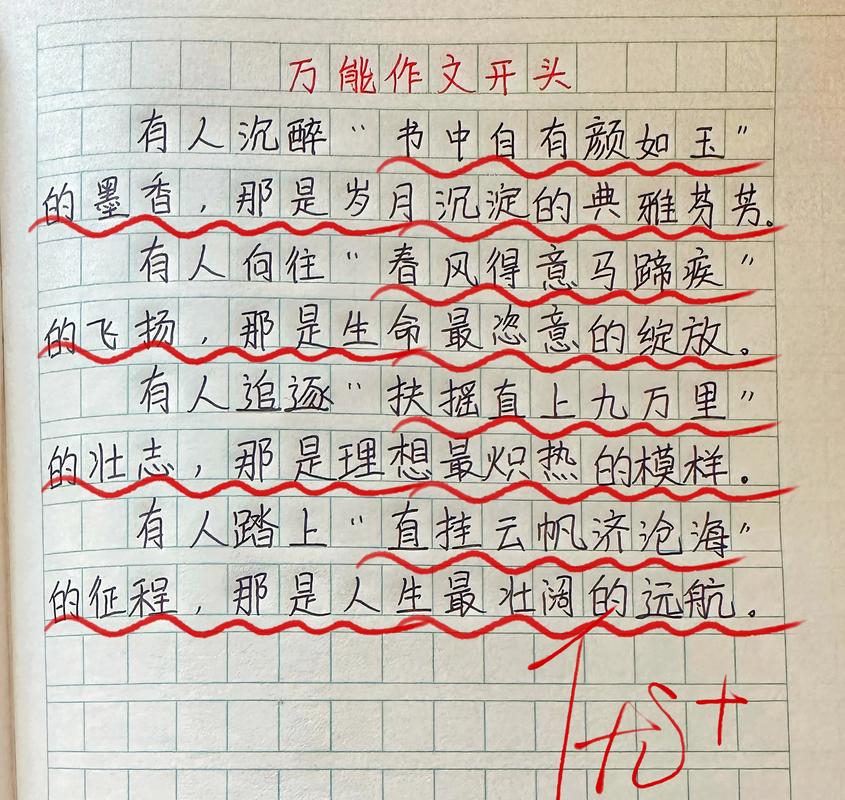 万能作文开头
有人沉醉“书中自有颜如玉”
的墨香，那是岁月沉淀的典雅芬芳。
有人向往“春风得意马蹄疾”
的飞扬，那是生命最恣意的绽放。
有人追逐“扶摇直上九万里”
的壮志，那是理想最炽热的模样。
有人踏上“直挂云帆济沧海”
的征程，那是人生最壮阔的远航。